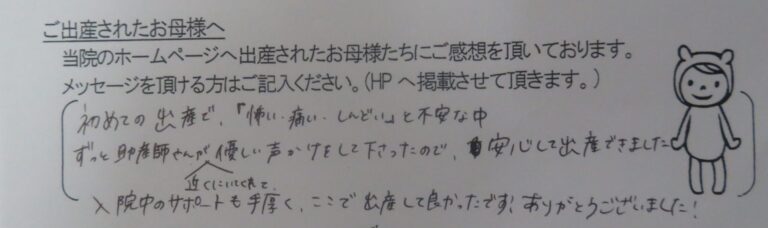 ご出産されたお母様へ
当院のホームページへ出産されたお母様たちにご感想を頂いております。
メッセージを頂ける方はご記入ください。(HPへ掲載させて頂きます。)
初めての出産で、「怖い・痛い・しんどい」と不安な中
ずっと助産師さんが優しい声かけをして下さったので、安心して出産できました
近くにいてくれて、
入院中のサポートも手厚く、ここで出産して良かったです!ありがとうございました!